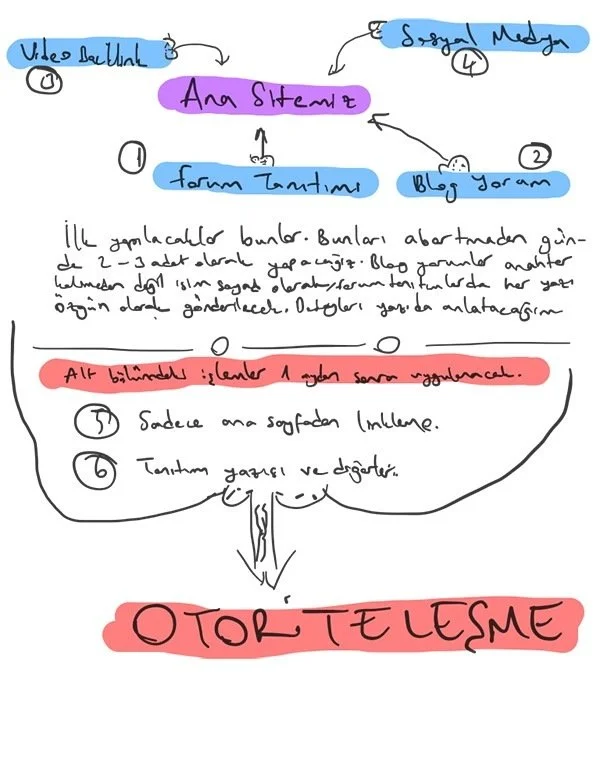 Video Backlink
3
Sosyal Medya
4
Ana Sitemiz
1
forum Tanıtımı
2
Blog Yorum
İlk yapılacaklar bunlar. Bunları abartmadan gün-
de 2-3 adet olarak yapacağız. Blog yorumlar anahtar
kelimeden değil isim soyad olarak, forum tanıtımlarda her yazı
özgün olarak gönderilecek. Detayları yazıda anlatacağım
Alt bölümdeki işlemler 1 aydan sonra uygulanacak.
5 Sadece ana sayfadan linkleme.
6 Tanıtım yazısı ve diğerleri.
OTORİTELEŞME